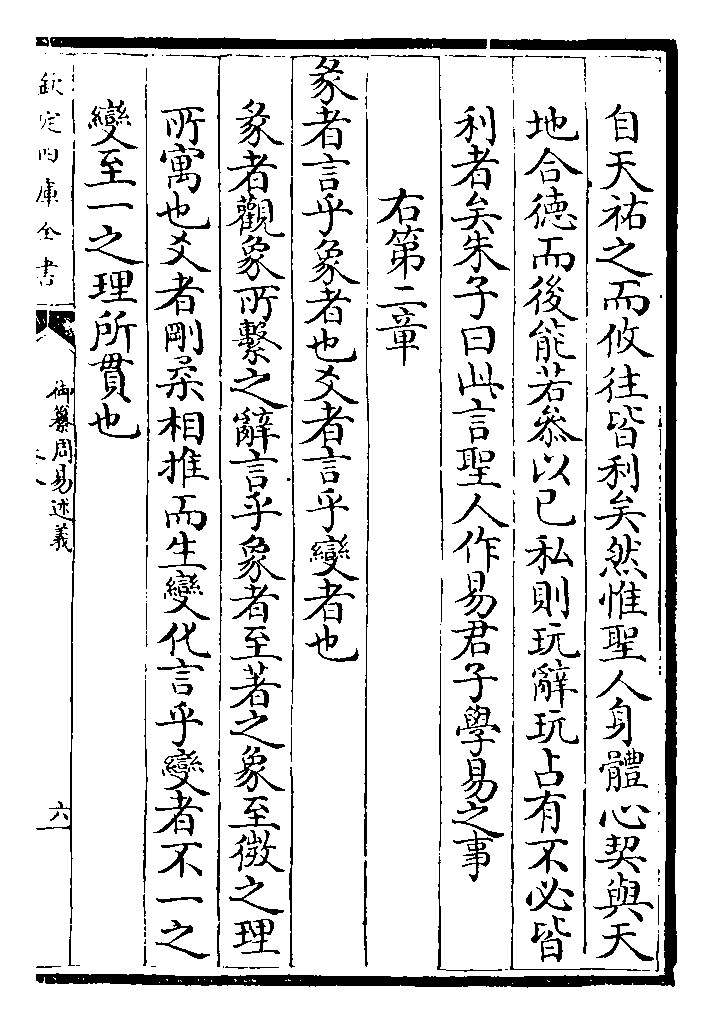 自天祐之而攸往皆利矣然惟聖人身體心契與天
地合德而後能若叅以已私則玩辭玩占有不必皆
利者矣朱子曰此言聖人作易君子學易之事
右第二章
彖者言乎象者也爻者言乎變者也
彖者觀象所繫之辭言乎象者至著之象至微之理
所寓也爻者剛柔相推而生變化言乎變者不一之
變至一之理所貫也
欽定四庫全書
御纂周易述義
六